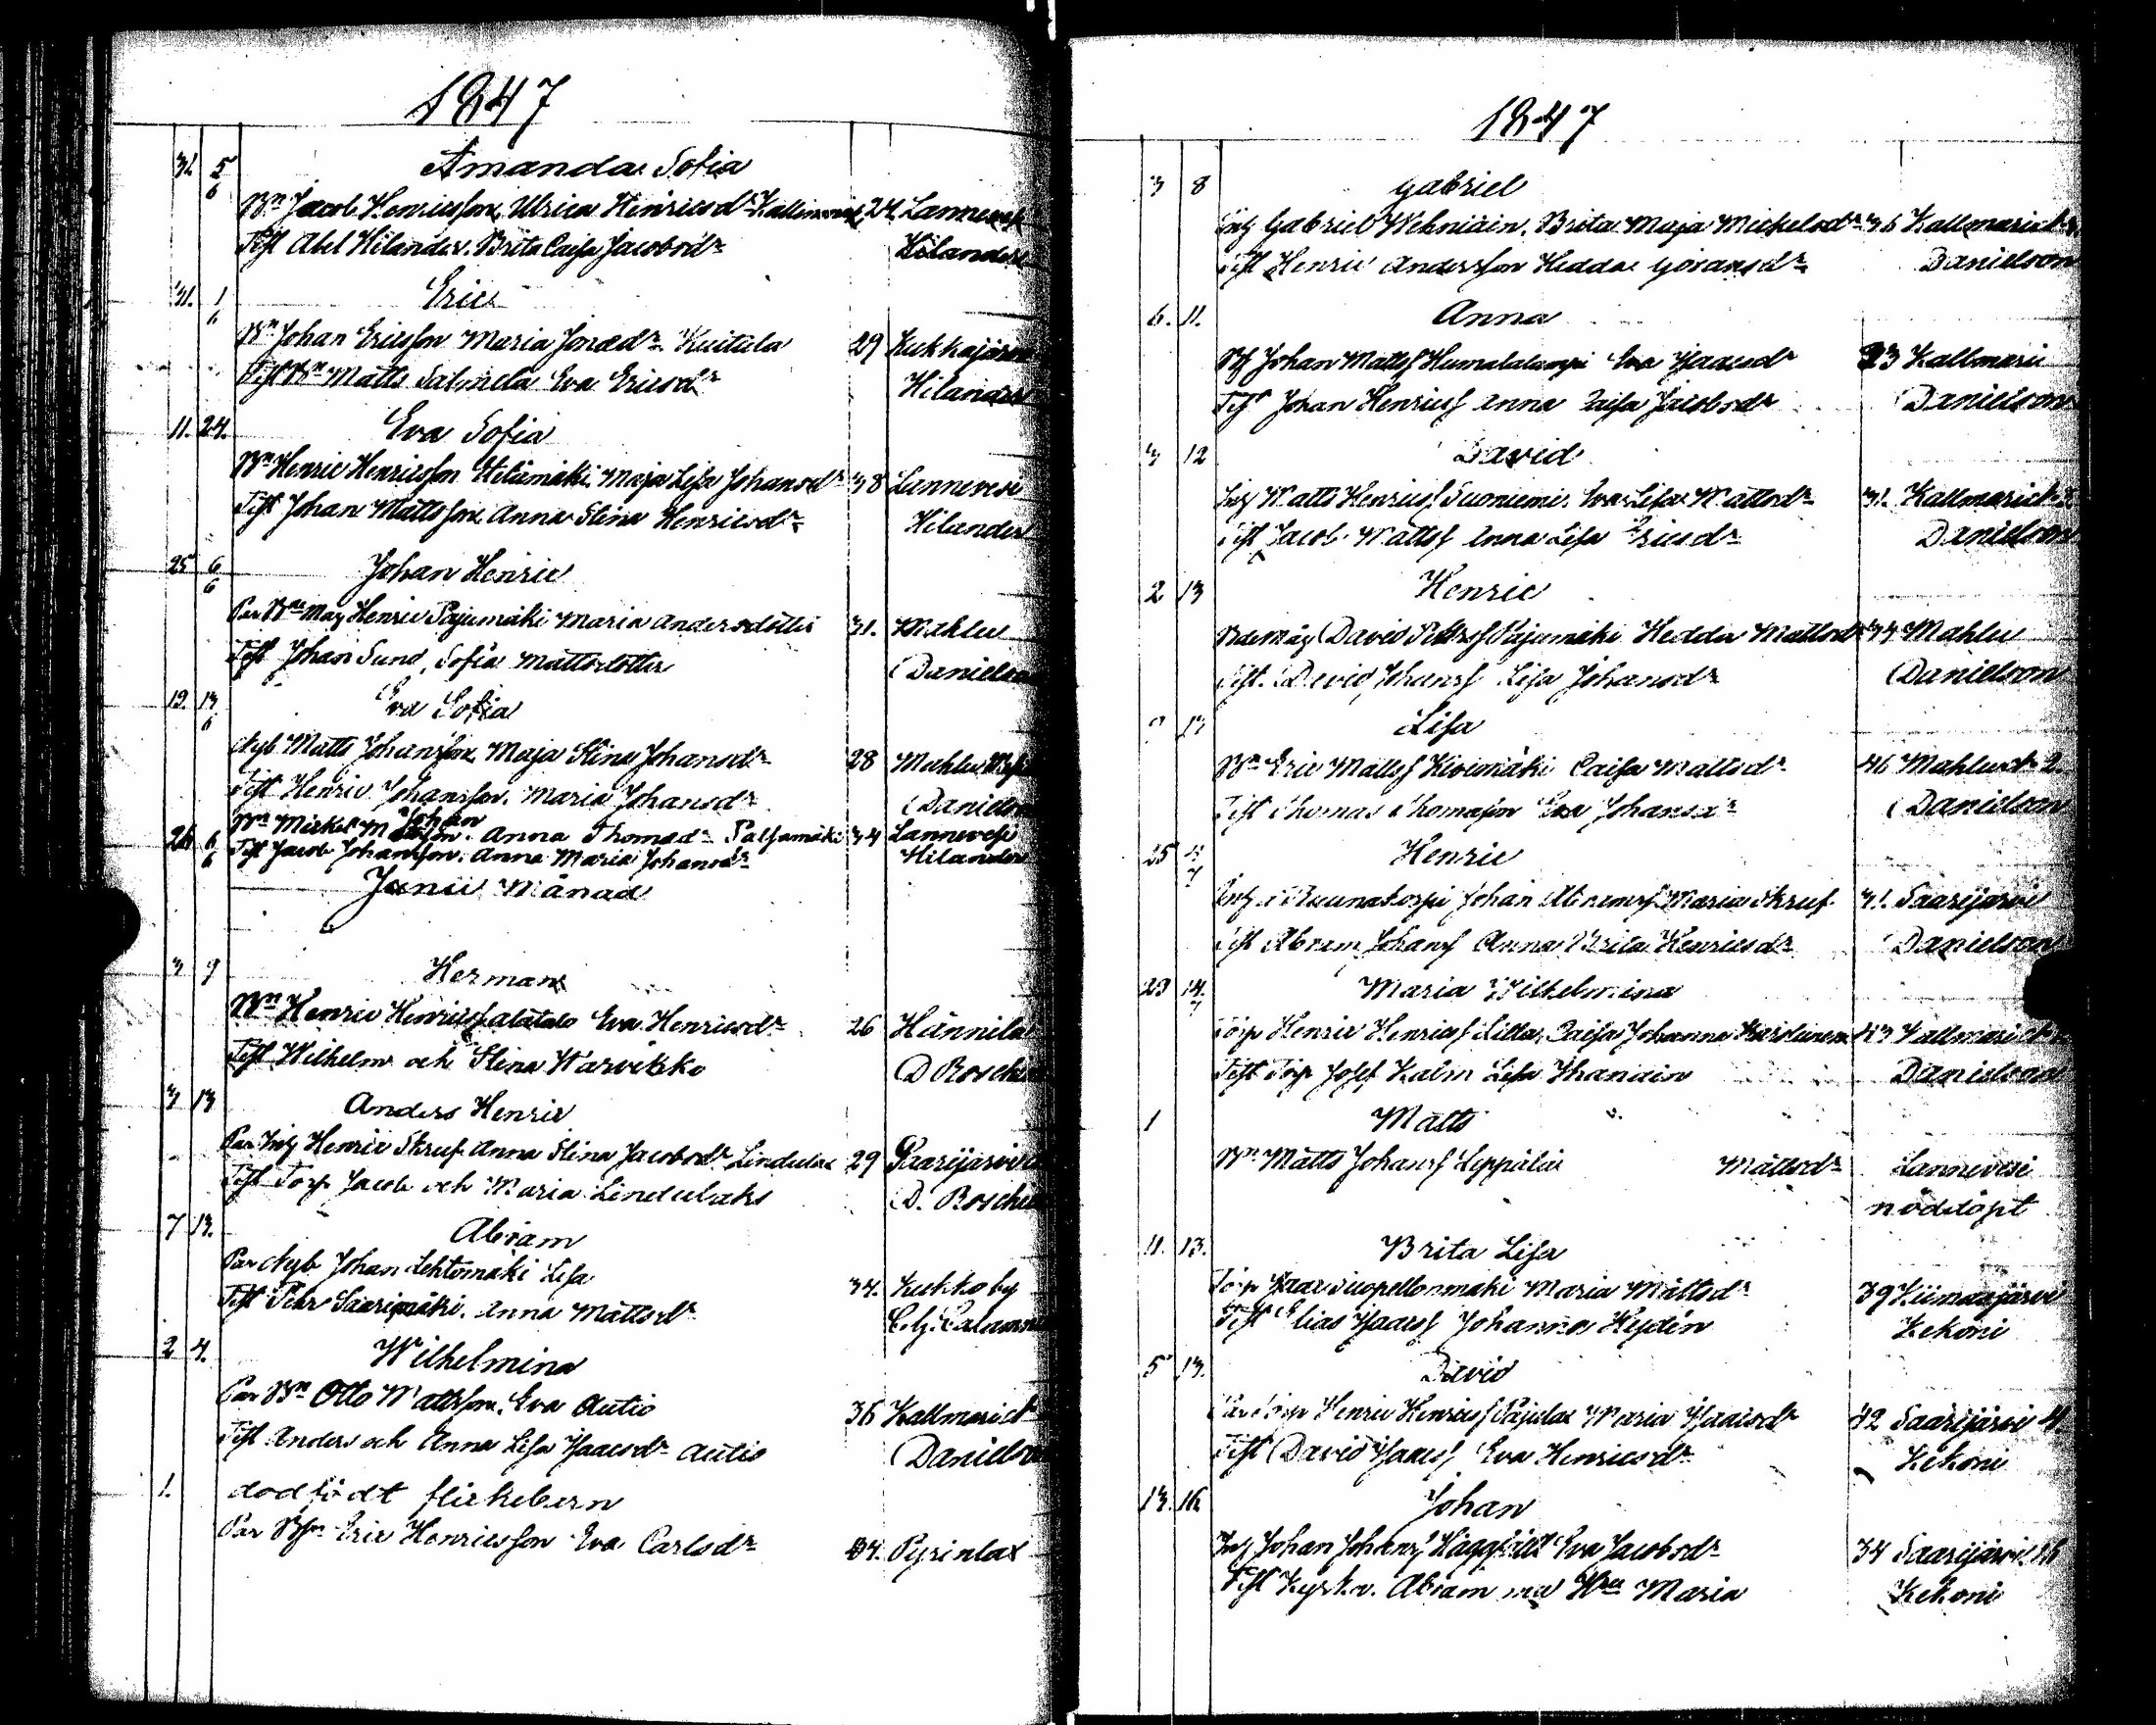 1847
31. 5/6 Amanda Sofia
Bn Jacob Henricsson, Ulrica Henricsdr 24 Lannevesi
Test Abel Hilander. Brita Caisa Jacobsdr Hilander
31. 1/6 Eric
Bn Johan Ericsson Maria Jonædr Kuitula 29 Kukkajärvi
Test Bn Matts Salmela Eva Ericsdr Hilander
11. 24. Eva Sofia
Bn Henric Henricsson Hitämäki Maja Lisa Johansdr 38 Lannevesi
Test Johan Mattsson Anna Stina Henricsdr Hilander
25 6/6 Johan Henric
Par Bne Måg Henric Pajumäki Maria Andersdotter 31. Mahlu
Test Johan Sund, Sofia Mattsdotter Danielson
19. 13/6 Eva Sofia
Nyb Matts Johansson, Maja Stina Johansdr 28 Mahlu
Test Henric Johansson. Maria Johansdr Danielson
Johan
26 6/6 Bn Mickel Anna Thomasdr Palsamäki 34 Lannevesi
Test Jacob Johansson. Anna Maria Johansdr Hilander
Junii Månad
3 9 Herman
Bn Henric Henricss alatalo Eva Henricsdr 26 Hännilä
Test Wilhelm och Stina Warvikko D Roschier
3 13 Anders Henric
Par Inh Henric Skruf Anna Stina Jacobsdr Lindulax 29 Saarijärvi
Test Torp Jacob och Maria Lindulaks D. Roschier
7 13. Abram
Par Nyb Johan Lehtomäki Lisa 34. Kukko by
Test Pehr Saarimäki. Anna Mattsdr
2 4. Wilhelmina
Par Bn Otto Mattsson, Eva Autio 36 Kallmarict
Test Anders och Anna Lisa Isaacsdr Autio Danielson
1. dödfödt flickebarn
Par Bn Eric Henricsson Eva Carlsdr 34. Pyrinlax
1847
3 8 Gabriel
Inh Gabriel Wehniäin. Brita Maja Mickelsdr 36 Kallmarict
Test Henric Andersson Hedda Göransdr Danielson
6. 11. Anna
Johan Mattss Humalalampi Eva Isacsdr 23 Kallmari
Test Johan Henrics Anna Caisa Jacobsdr Danielson
3 12 David
Inh Matts Henrics Suoniemi. Eva Lisa Mattsdr 31. Kallmarict
Test Jacob Mattss Anna Lisa Ericsdr Danielson
2 13 Henric
Bdemåg David Pettrss Pajumäki Hedda Mattsdr 33 Mahlu
Test. David Johanss Lisa Johansdr Danielson
13 Lisa
Bn Eric Mattss Kivimäki Caisa Mattsdr 46 Mahlu 2.
Test Thomas Thomasson Eva Johansdr Danielson
25 Henric
Johan Maria Skruf 31. Saarijärvi
Test Abram Johanss Anna Brita Henricsdr Danielson
23 14. Maria Wilhelmina
Torp Henric Henricss Caisa Johanna 43 Kallmarict
Test Torp Josef Kalm Lisa Ihanain Danielson
1 Matts
Bn Matts Johanss Leppälä Mattsdr Lannevesi
nöddöpt
11. 13. Brita Lisa
Torp Isaac Suopellonmäki Maria Mattsdr 39 Kiimasjärvi
Test Elias Isaacss Johanna Heidin Kekoni
5 13. David
Par Torp Henric Henricss Pajula Maria Isaacsdr 42 Saarijärvi 4.
Test David Isaacss Eva Henricsdr Kekoni
13. 16 Johan
Inh Johan Johanss Häggblad Eva Jacobsdr 34 Saarijärvi 16
Test Kyrk.v. Abram Maria Kekoni